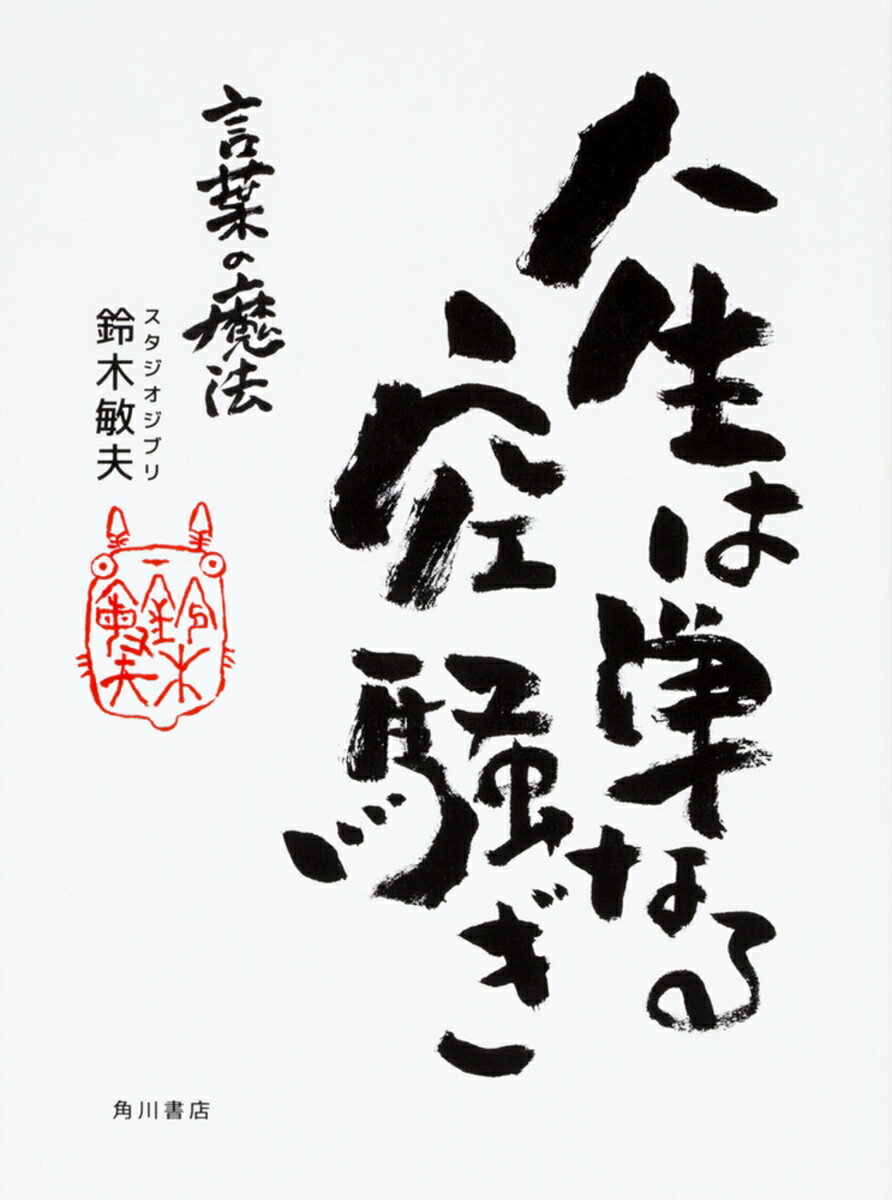 人生は単なる
空騒ぎ
言葉の魔法
スタジオジブリ
鈴木敏夫
鈴木
敏夫
角川書店